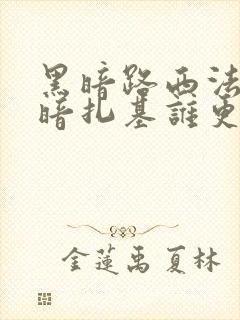 黑暗路西法
暗扎基誰更
金蓮禹 夏林